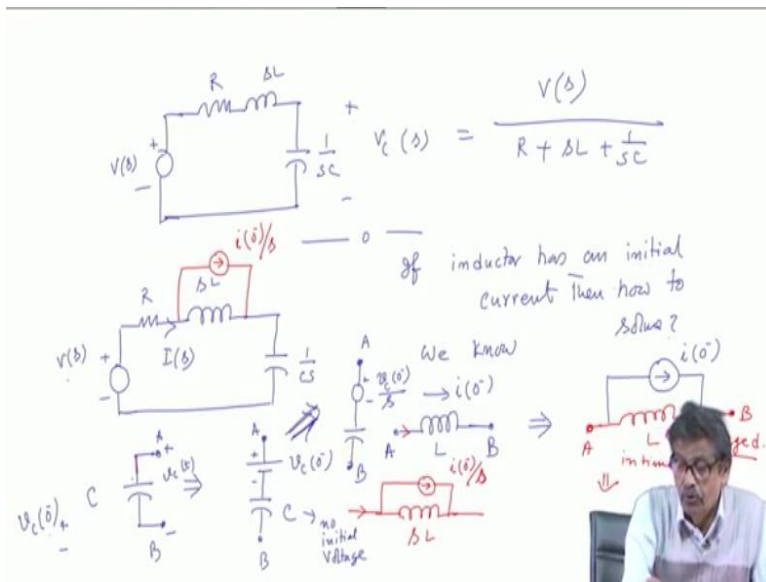 R sL
V(s) + - 1/sC + - v_c(s) = V(s) / (R + sL + 1/sC)
— o —
i(0⁻)/s
If inductor has an initial
current Then how to
solve?
R sL
V(s) + - I(s) 1/cs
We know
A + - v_c(0⁻)/s B
→ i(0⁻)
A L B
⇒
i(0⁻)
A L B
in tim ged.
⇓
v_c(0⁻) + - C A + v_c(t) B - ⇒
A + - v_c(0⁻) C → no initial voltage B
i(0⁻)/s
sL